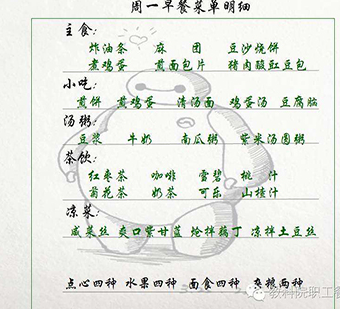 周一早餐菜单明细
主食:
炸油条 麻 团 豆沙烧饼
煮鸡蛋 煎面包片 猪肉酸豇豆包
小吃:
煎饼 煎鸡蛋 清汤面 鸡蛋汤 豆腐脑
汤粥:
豆浆 牛奶 南瓜粥 紫米汤圆粥
茶饮:
红枣茶 咖啡 雪碧 桃 汁
菊花茶 奶茶 可乐 山楂汁
凉菜:
咸菜丝 爽口紫甘蓝 炝拌藕丁 凉拌土豆丝
点心四种 水果四种 面食四种 杂粮两种
教科院职工餐